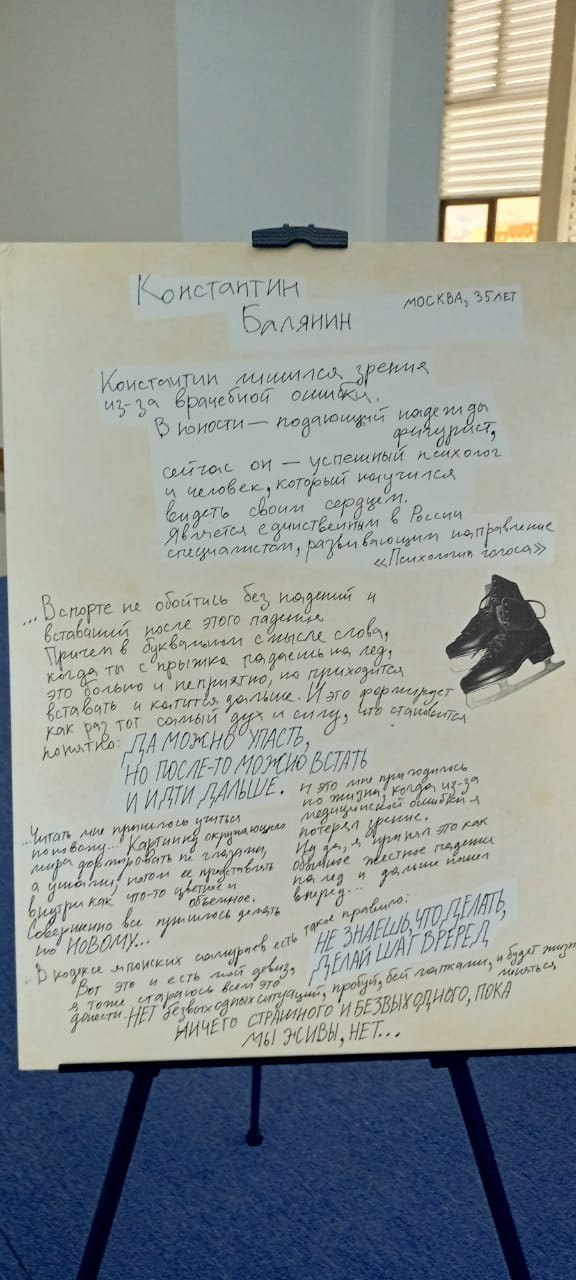 Константин
Балянин
МОСКВА, 35 ЛЕТ
Константин лишился зрения
из-за врачебной ошибки.
В юности — подающий надежды
фигурист,
сейчас он — успешный психолог
и человек, который научился
видеть своим сердцем.
Является единственным в России
специалистом, развивающим направление
«Психология голоса»
...В спорте не обойтись без падений и
вставаний после этого падения.
Причем в буквальном смысле слова,
когда ты с прыжка падаешь на лед,
это больно и неприятно, но приходится
вставать и катится дальше. И это формирует
как раз тот самый дух и силу, что становится
понятно: ДА МОЖНО УПАСТЬ,
НО ПОСЛЕ-ТО МОЖНО ВСТАТЬ
И ИДТИ ДАЛЬШЕ.
И это мне пригодилось
по жизни, когда из-за
медицинской ошибки я
потерял зрение.
Ну да, я принял это как
обычное жесткое падение
на лед и дальше пошел
вперед...
...Читать мне пришлось учиться
по новому... Картинку окружающего
мира формировать не глазами,
а ушами, потом ее представлять
внутри как что-то цветное и
объемное.
Совершенно все пришлось делать
по НОВОМУ...
...В кодексе японских самураев есть такое правило:
НЕ ЗНАЕШЬ, ЧТО ДЕЛАТЬ,
ДЕЛАЙ ШАГ ВПЕРЕД
Вот это и есть мой девиз,
я тоже стараюсь всем это
донести. НЕТ безвыходных ситуаций, пробуй, бей лапками, и будет жизнь
меняться
НИЧЕГО СТРАШНОГО И БЕЗВЫХОДНОГО, ПОКА
МЫ ЖИВЫ, НЕТ...